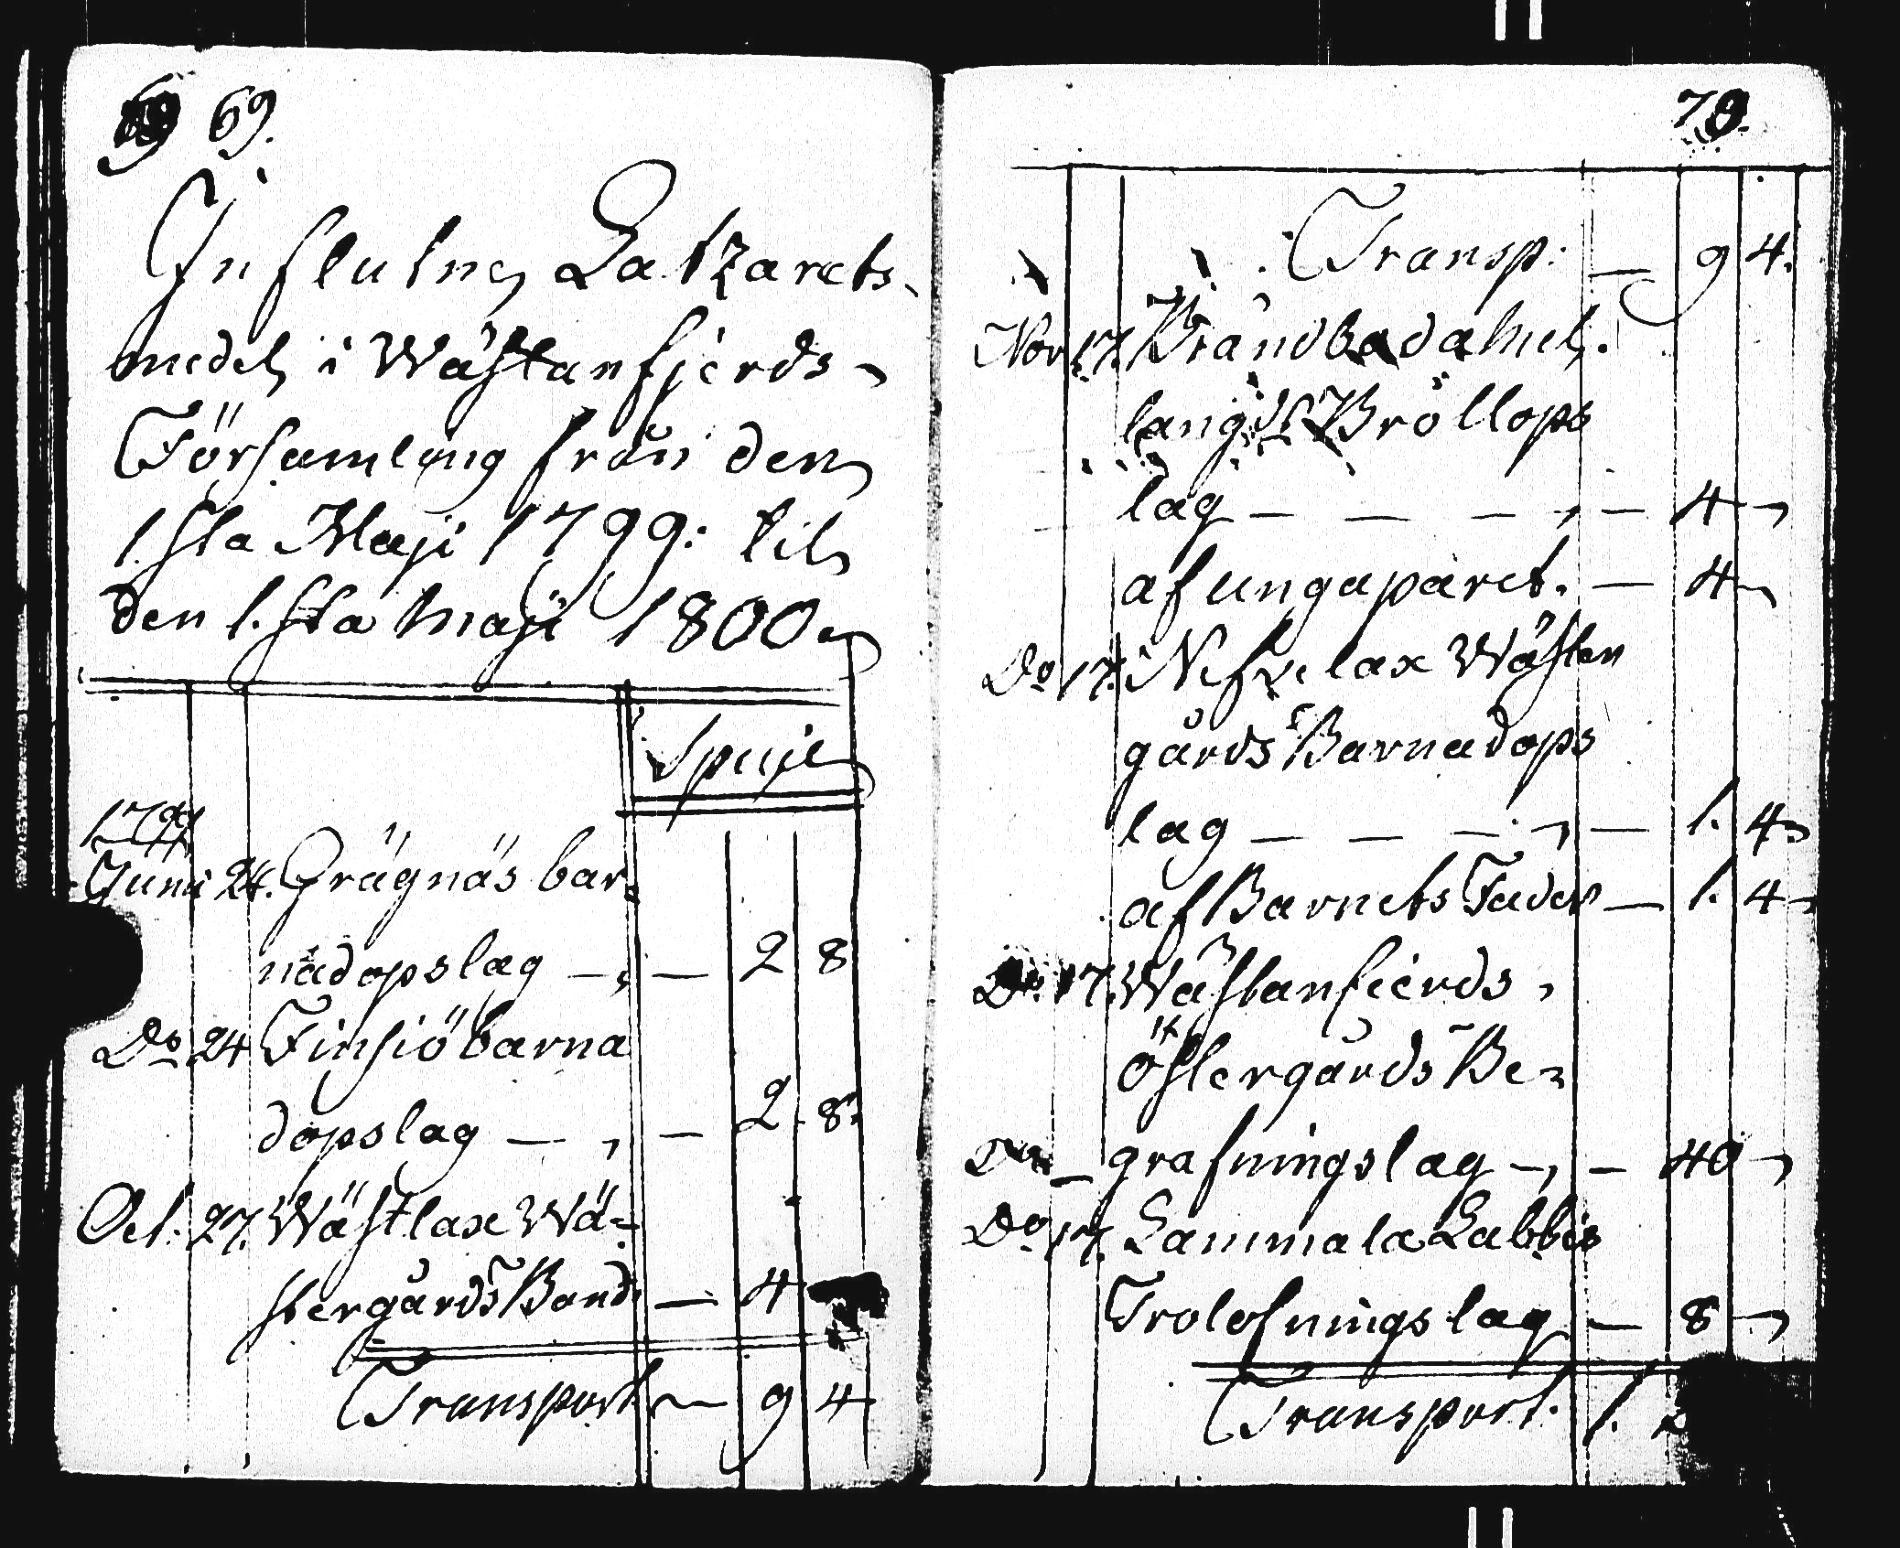 69.
Influtne Latzarets-
medel i Wästanfjerds-
Församling från den
1.sta Maji 1799: til
den 1.sta Maji 1800
1799
Juni 24. Grägnäs bar-
nadopslag — — 2 8
Do 24 Finsiö barna
dopslag — — 2 8.
Oct. 27. Wästlax Wä-
stergårds Bond — 4
Transport — 9 4
70.
Transp: — 9 4.
Nov 17. Bröllops
lag — — — — 4
af ungaparet. — 4
Do 17. Nefvelax Wästen
gårds Barnadops
lag — — — — 1. 4
af Barnets Fader — 1. 4
Do 17. Wästanfierds
östergårds Be-
grafningslag — — 40
Do 17. Lammala Labbis
Trolofningslag — 8
Transport. 1.